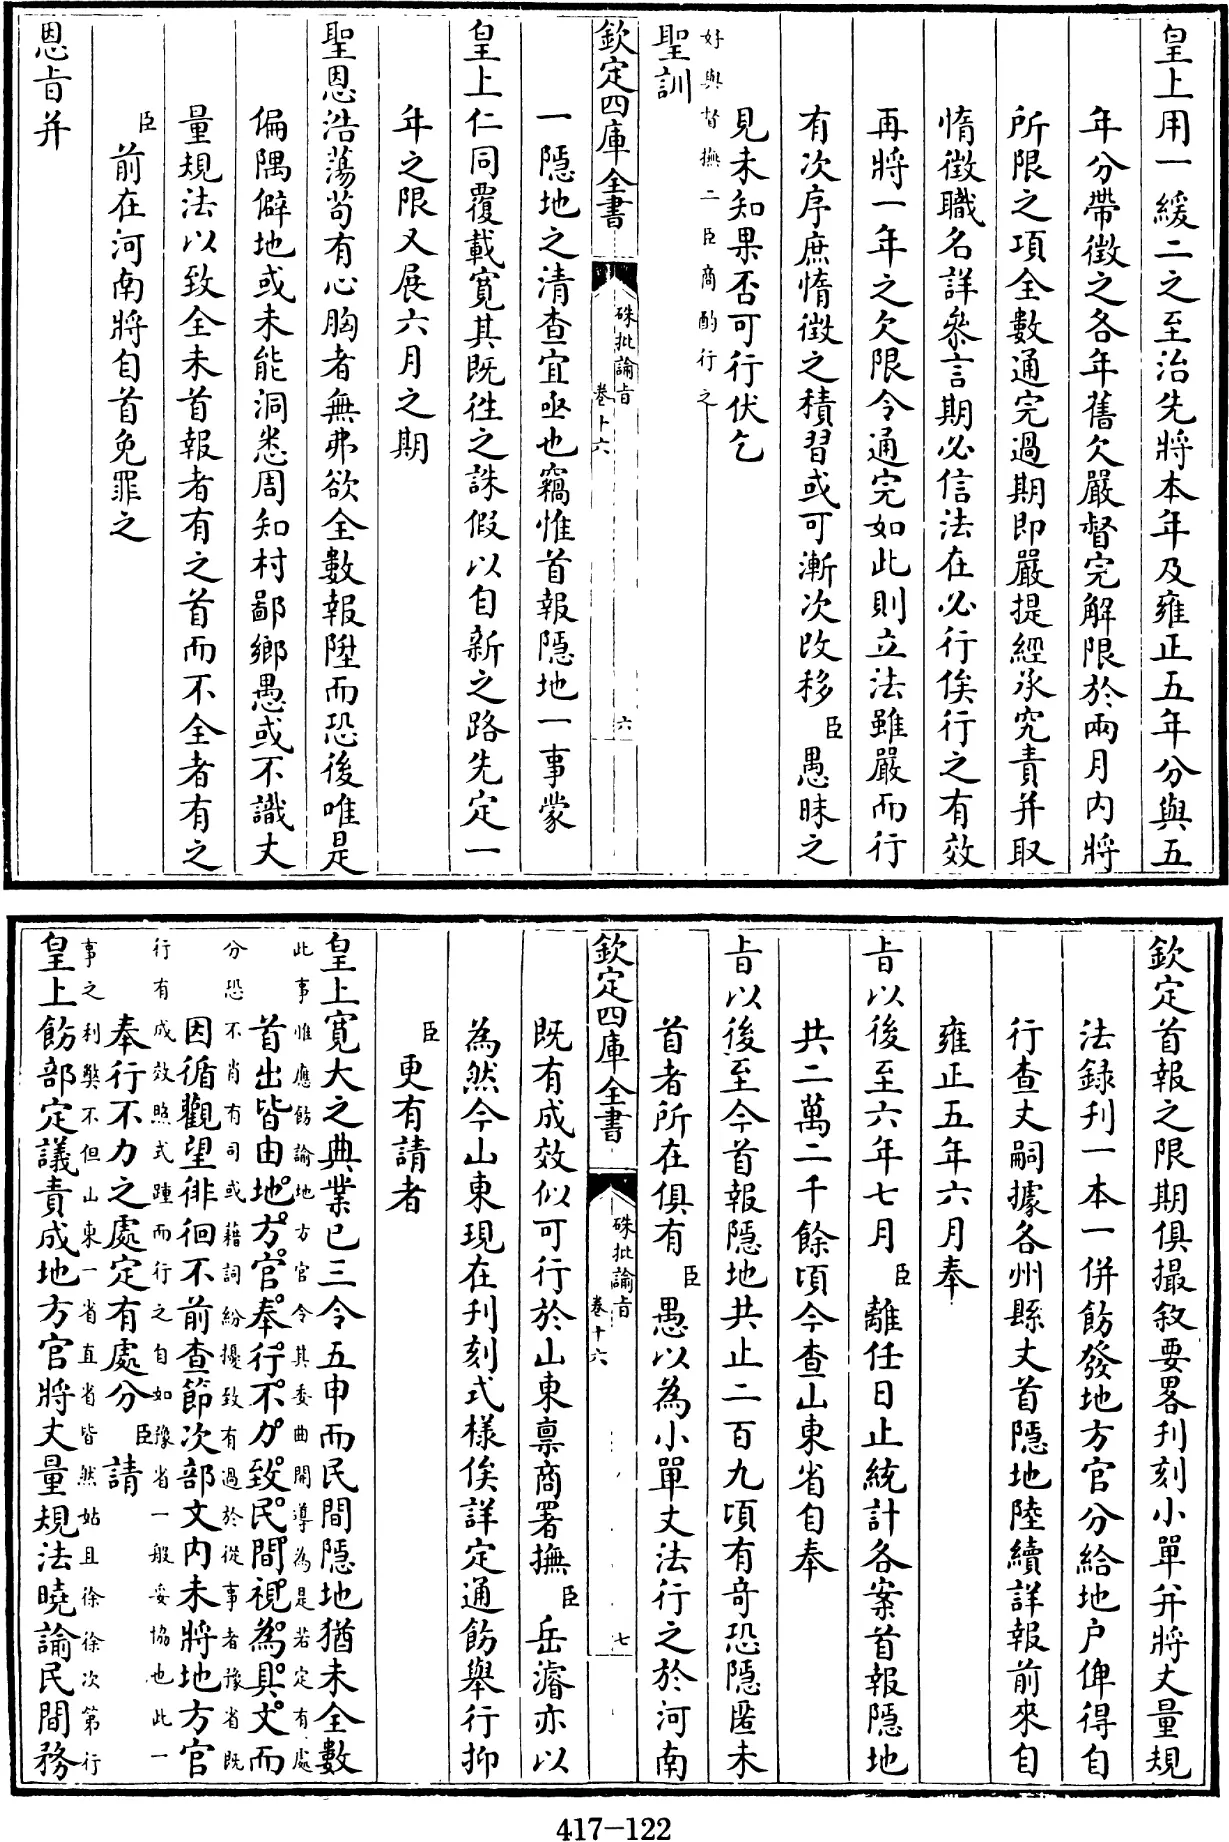 皇上用一緩二之至治先將本年及雍正五年分與五
年分帶徵之各年舊欠嚴督完解限於兩月內將
所限之項全數通完過期即嚴提經承究責并取
惰徵職名詳叅言期必信法在必行俟行之有效
再將一年之欠限令通完如此則立法雖嚴而行
有次序庶惰徵之積習或可漸次改移臣愚昧之
見未知果否可行伏乞
好與督撫二臣商酌行之
聖訓
欽定四庫全書
硃批諭旨
卷十六
六
一隱地之清查宜亟也竊惟首報隱地一事蒙
皇上仁同覆載寬其既徃之誅假以自新之路先定一
年之限又展六月之期
聖恩浩蕩苟有心胸者無弗欲全數報陞而恐後唯是
偏隅僻地或未能洞悉周知村鄙鄉愚或不識丈
量規法以致全未首報者有之首而不全者有之
臣前在河南將自首免罪之
恩旨并
欽定首報之限期俱撮敘要畧刋刻小單并將丈量規
法錄刋一本一併飭發地方官分給地户俾得自
行查丈嗣據各州縣丈首隱地陸續詳報前來自
雍正五年六月奉
旨以後至六年七月臣離任日止統計各案首報隱地
共二萬二千餘頃今查山東省自奉
旨以後至今首報隱地共止二百九頃有奇恐隱匿未
首者所在俱有臣愚以為小單丈法行之於河南
欽定四庫全書
硃批諭旨
卷十六
七
既有成效似可行於山東禀商署撫臣岳濬亦以
為然今山東現在刋刻式樣俟詳定通飭舉行抑
臣更有請者
皇上寬大之典業已三令五申而民間隱地猶未全數
此事惟應飭諭地方官令其委曲開導為是若定有處
首出皆由地方官奉行不力致民間視為具文而
分恐不肖有司或藉詞紛擾致有過於從事者豫省既
因循觀望徘徊不前查節次部文内未將地方官
行有成效照式踵而行之自如豫省一般妥協也此一
奉行不力之處定有處分臣請
事之利獘不但山東一省直省皆然姑且徐徐次第行
皇上飭部定議責成地方官將丈量規法曉諭民間務
417-122